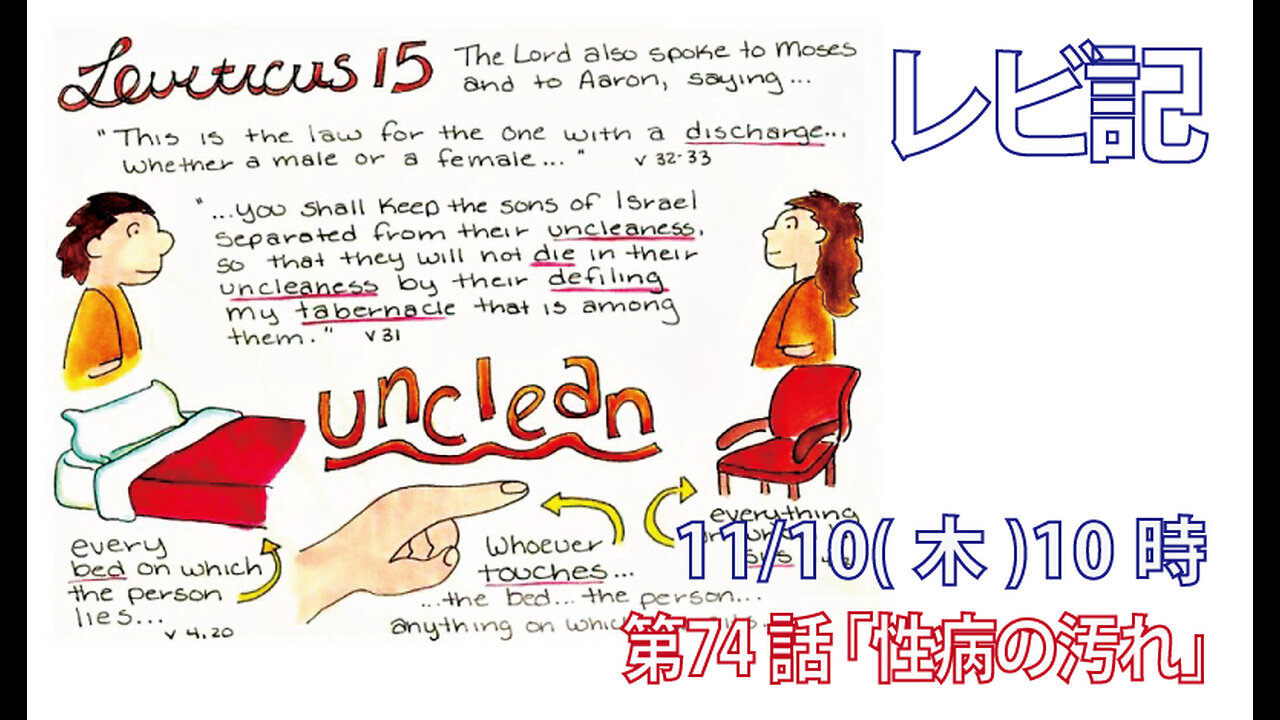 Leviticus 15
The Lord also spoke to Moses
and to Aaron, saying...
レビ記
"This is the law for the one with a discharge...
whether a male or a female..." v 32-33
"...you shall keep the sons of Israel
separated from their uncleaness,
so that they will not die in their
uncleaness by their defiling
my tabernacle that is among
them." v 31
unclean
every
bed on which
the person
lies...
v 4,20
Whoever
touches...
...the bed...the person...
anything on
everything
11/10(木)10時
第74話「性病の汚れ」